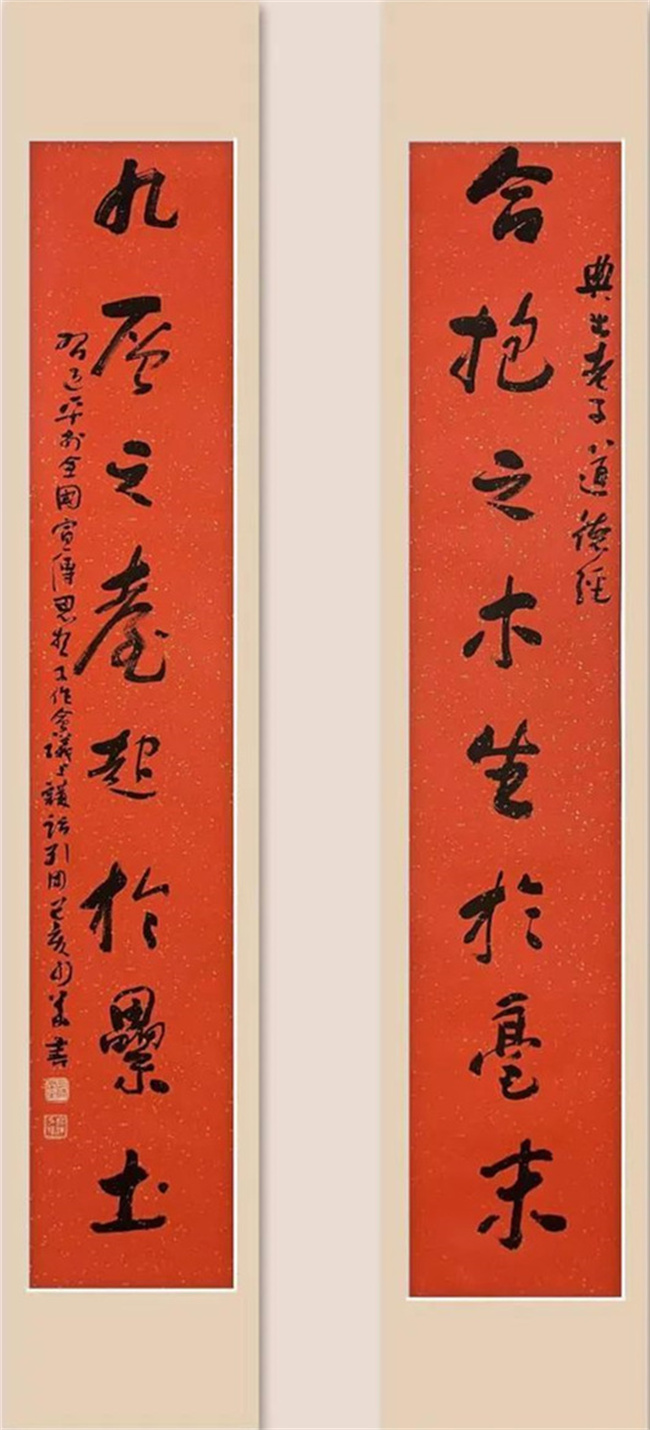 合抱之木生於毫末
典出老子道德經
九層之臺起於纍土
習近平於全國宣傳思想工作會議上講話引用己亥書